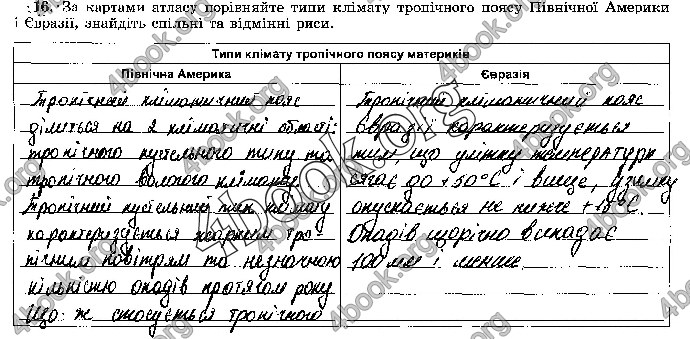 16. За картами атласу порівняйте типи клімату тропічного поясу Північної Америки
і Євразії, знайдіть спільні та відмінні риси.
Типи клімату тропічного поясу материків
Північна Америка
Тропічний кліматичний пояс
ділиться на 2 кліматичні області:
тропічного пустельного типу та
тропічного вологого клімату.
Тропічний пустельний тип клімату
характеризується жарким тро
пічним повітрям та незначною
кількістю опадів протягом року
Що ж стосується тропічного
Євразія
Тропічний кліматичний пояс
Євразії характеризується
тим, що улітку температури
сягає до +50°C і вище, узимку
опускається не нижче
Опадів щорічно випадає
100 мм і менше
4book.org